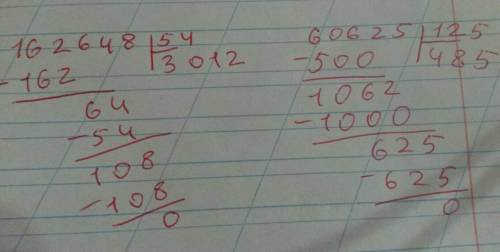 162648 54
-162 3012
64
-54
108
-108
0
60625 125
-500 485
1062
-1000
625
-625
0